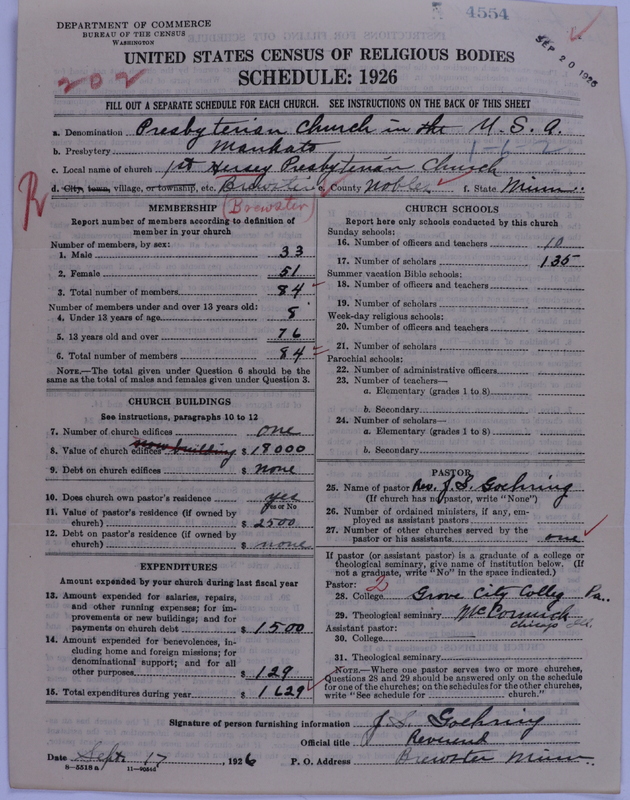 4554
DEPARTMENT OF COMMERCE
BUREAU OF THE CENSUS
WASHINGTON
SEP 20 1926
UNITED STATES CENSUS OF RELIGIOUS BODIES
202
SCHEDULE: 1926
FILL OUT A SEPARATE SCHEDULE FOR EACH CHURCH. SEE INSTRUCTIONS ON THE BACK OF THIS SHEET
a. Denomination Presbyterian Church in the U. S. A.
b. Presbytery Mankato 1-6-2
c. Local name of church 1st Hersey Presbyterian Church
d. City, town, village, or township, etc. Brewster e. County Nobles f. State Minn.
R
MEMBERSHIP (Brewster)
Report number of members according to definition of
member in your church
Number of members, by sex:
1. Male 33
2. Female 51
3. Total number of members 84
Number of members under and over 13 years old:
4. Under 13 years of age 8
5. 13 years old and over 76
6. Total number of members 84
NOTE.—The total given under Question 6 should be the
same as the total of males and females given under Question 3.
CHURCH BUILDINGS
See instructions, paragraphs 10 to 12
7. Number of church edifices one
now building
8. Value of church edifices $ 18000
9. Debt on church edifices $ none
10. Does church own pastor's residence yes
Yes or No
11. Value of pastor's residence (if owned by
church) $ 2500
12. Debt on pastor's residence (if owned by
church) $ none
EXPENDITURES
Amount expended by your church during last fiscal year
13. Amount expended for salaries, repairs,
and other running expenses; for im-
provements or new buildings; and for
payments on church debt $ 1500
14. Amount expended for benevolences, in-
cluding home and foreign missions; for
denominational support; and for all
other purposes $ 129
15. Total expenditures during year $ 1629
CHURCH SCHOOLS
Report here only schools conducted by this church
Sunday schools:
16. Number of officers and teachers 10
17. Number of scholars 135
Summer vacation Bible schools:
18. Number of officers and teachers
19. Number of scholars
Week-day religious schools:
20. Number of officers and teachers
21. Number of scholars
Parochial schools:
22. Number of administrative officers
23. Number of teachers—
a. Elementary (grades 1 to 8)
b. Secondary
24. Number of scholars—
a. Elementary (grades 1 to 8)
b. Secondary
PASTOR
25. Name of pastor Rev. J. S. Goehring
(If church has no pastor, write "None")
26. Number of ordained ministers, if any, em-
ployed as assistant pastors
27. Number of other churches served by the
pastor or his assistants one
If pastor (or assistant pastor) is a graduate of a college or
theological seminary, give name of institution below. (If
not a graduate, write "No" in the space indicated.)
Pastor: 2
28. College Grove City Colleg Pa.
29. Theological seminary McCormick
Assistant pastor: Chicago Ill.
30. College
31. Theological seminary
NOTE.—Where one pastor serves two or more churches,
Questions 28 and 29 should be answered only on the schedule
for one of the churches; on the schedules for the other churches,
write "See schedule for church."
Signature of person furnishing information J. S. Goehring
Official title Reverend
Date Sept. 17, 1926 P. O. Address Brewster Minn.
8-5518 a 11-9044d